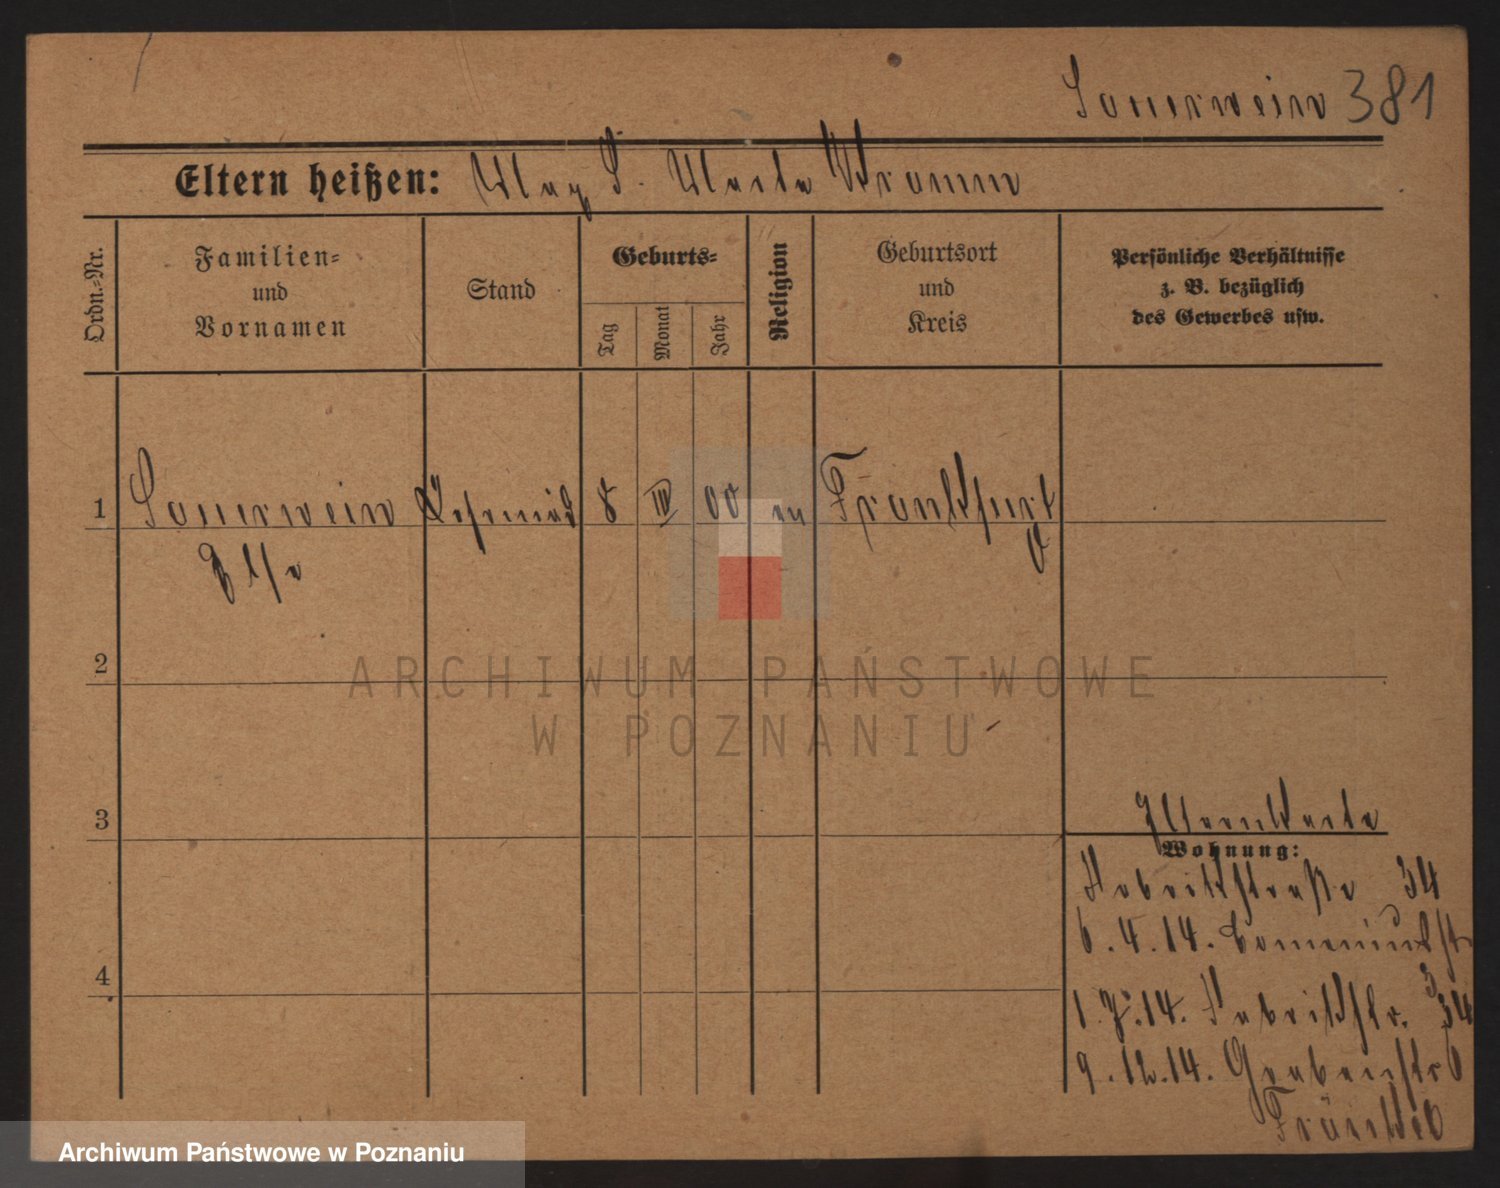 Sauerwein 381
Eltern heißen: Max S. Kramm
Ordn.-Nr.
Familien-
und
Vornamen
Stand
Geburts-
Tag
Monat
Jahr
Religion
Geburtsort
und
Kreis
Persönliche Verhältnisse
z. B. bezüglich
des Gewerbes usw.
1 Sauerwein 8 III 00 ev Frankfurt
Else O
2
3
4
Elternkarte
Wohnung:
Fabrikstraße 34
6.4.14. Comeniusstr
3
1.7.14. Fabrikstr. 34
9.12.14. Grabenstr 6
ARCHIWUM PAŃSTWOWE
W POZNANIU
Archiwum Państwowe w Poznaniu